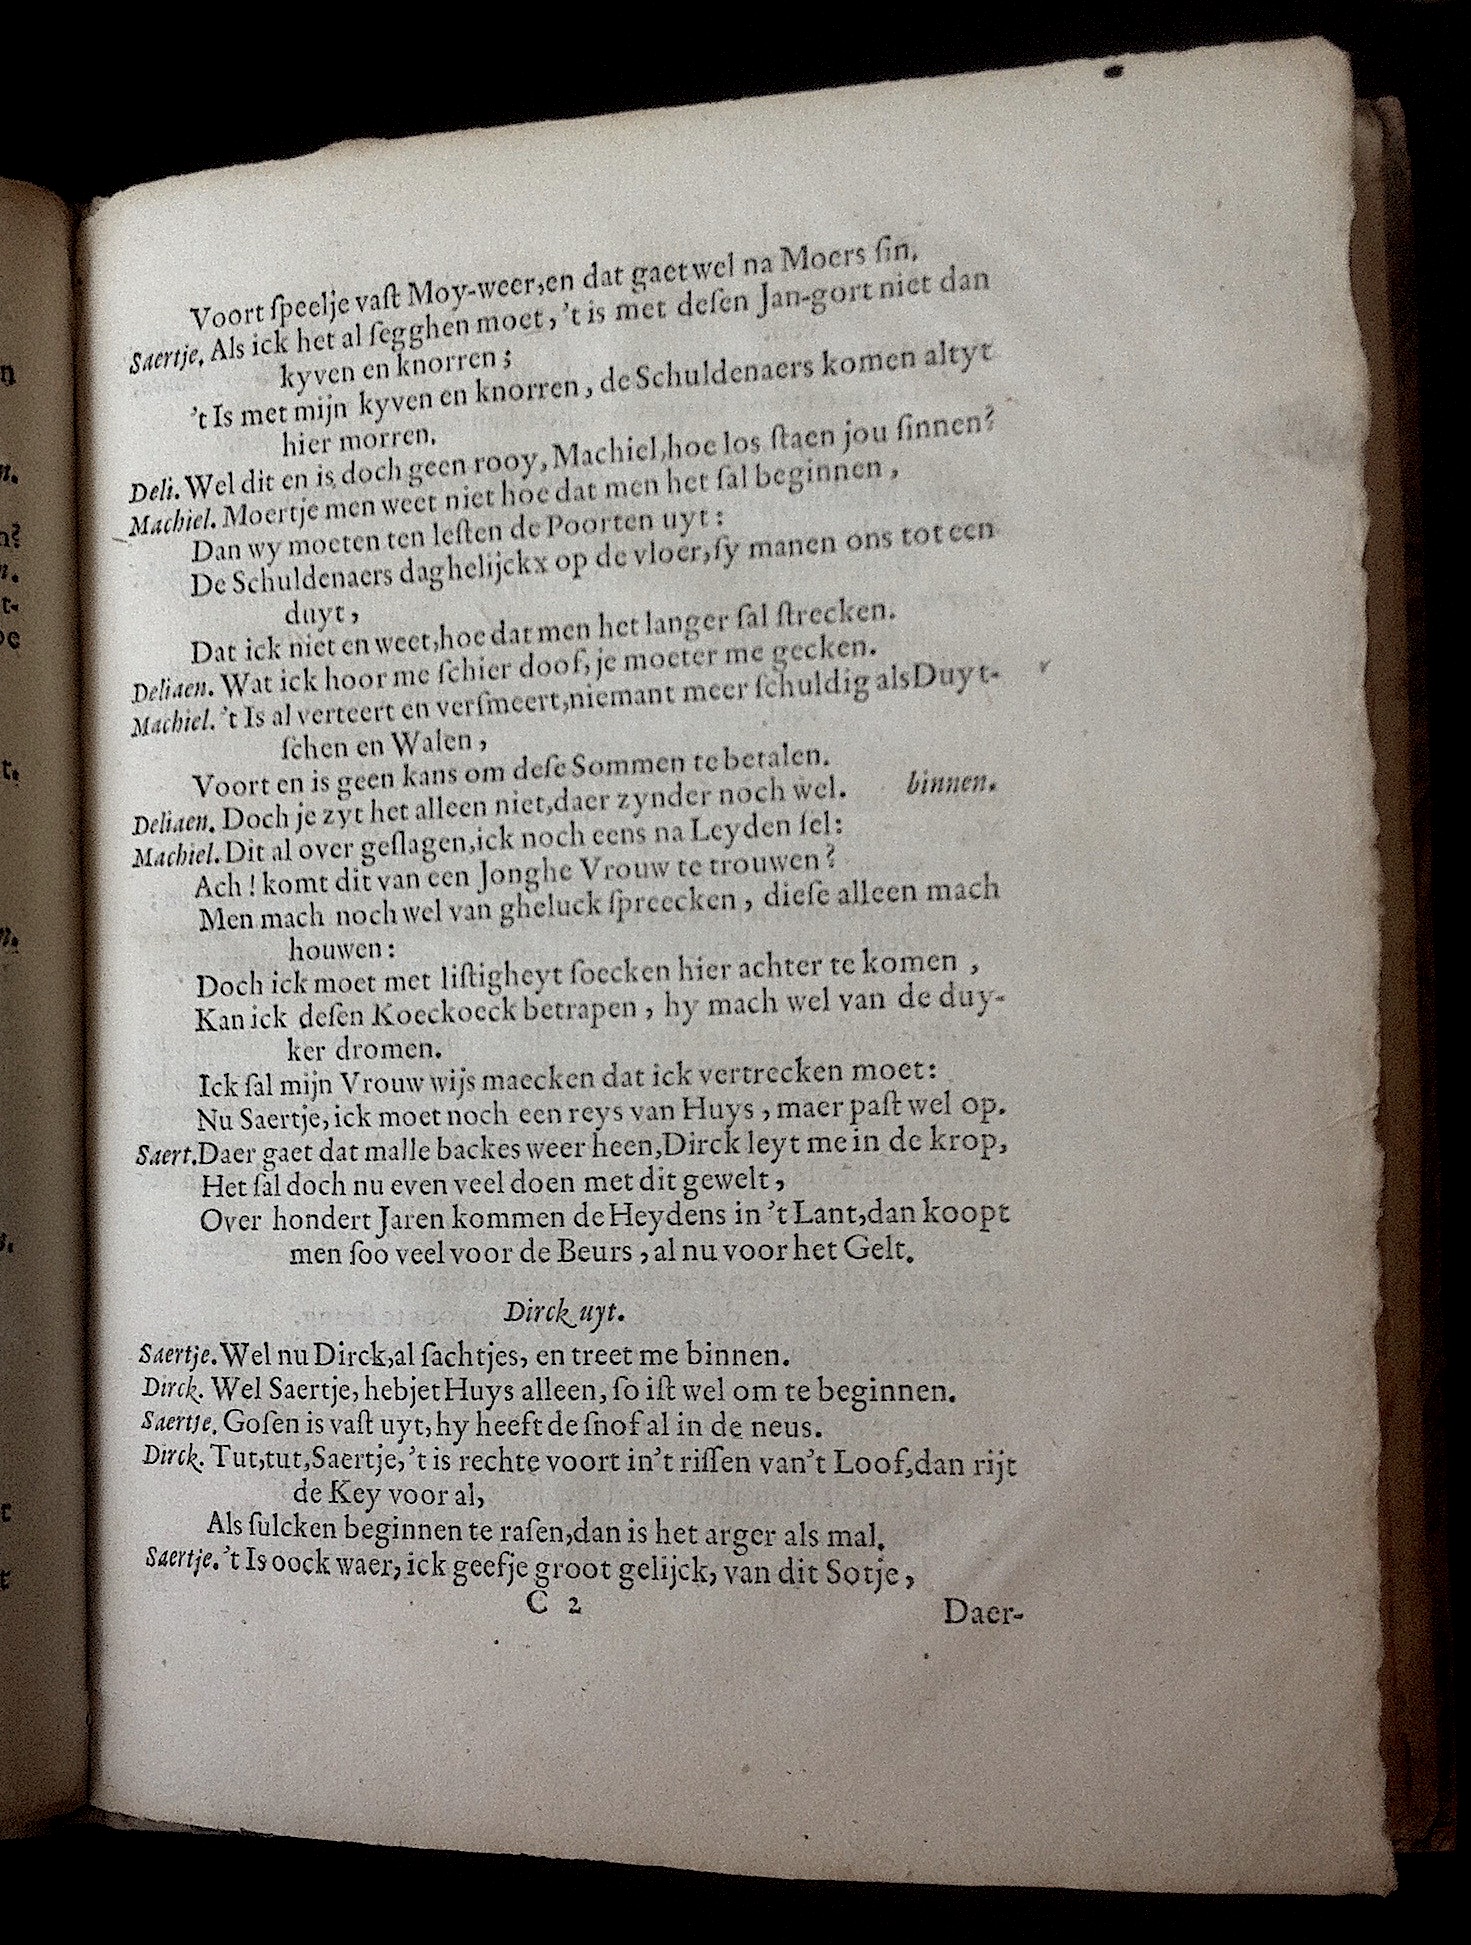 Voort ſpeelje vaſt Moy-weer, en dat gaet wel na Moers ſin.
Saertje. Als ick het al ſegghen moet, 't is met deſen Jan-gort niet dan
kyven en knorren;
't Is met mijn kyven en knorren, de Schuldenaers komen altyt
hier morren.
Deli. Wel dit en is doch geen rooy, Machiel, hoe los ſtaen jou ſinnen?
Machiel. Moertje men weet niet hoe dat men het ſal beginnen,
Dan wy moeten ten leſten de Poorten uyt:
De Schuldenaers daghelijckx op de vloer, ſy manen ons tot een
duyt,
Dat ick niet en weet, hoe dat men het langer ſal ſtrecken.
Deliaen. Wat ick hoor me ſchier doof, je moeter me gecken.
Machiel. 't Is al verteert en verſmeert, niemant meer ſchuldig als Duyt-
ſchen en Walen,
Voort en is geen kans om deſe Sommen te betalen.
Deliaen. Doch je zyt het alleen niet, daer zynder noch wel. binnen.
Machiel. Dit al over geſlagen, ick noch eens na Leyden ſel:
Ach! komt dit van een Jonghe Vrouw te trouwen?
Men mach noch wel van gheluck ſpreecken, dieſe alleen mach
houwen:
Doch ick moet met liſtigheyt ſoecken hier achter te komen,
Kan ick deſen Koeckoeck betrapen, hy mach wel van de duy-
ker dromen.
Ick ſal mijn Vrouw wijs maecken dat ick vertrecken moet:
Nu Saertje, ick moet noch een reys van Huys, maer paſt wel op.
Saert. Daer gaet dat malle backes weer heen, Dirck leyt me in de krop,
Het ſal doch nu even veel doen met dit gewelt,
Over hondert Jaren kommen de Heydens in 't Lant, dan koopt
men ſoo veel voor de Beurs, al nu voor het Gelt.
Dirck uyt.
Saertje. Wel nu Dirck, al ſachtjes, en treet me binnen.
Dirck. Wel Saertje, hebjet Huys alleen, ſo iſt wel om te beginnen.
Saertje. Goſen is vaſt uyt, hy heeft de ſnof al in de neus.
Dirck. Tut, tut, Saertje, 't is rechte voort in 't riſſen van 't Loof, dan rijt
de Key voor al,
Als ſulcken beginnen te raſen, dan is het arger als mal.
Saertje. 't Is oock waer, ick geefje groot gelijck, van dit Sotje,
C 2
Daer-
n
n.
n?
n.
t-
oe
t.
n.
s.
t
t